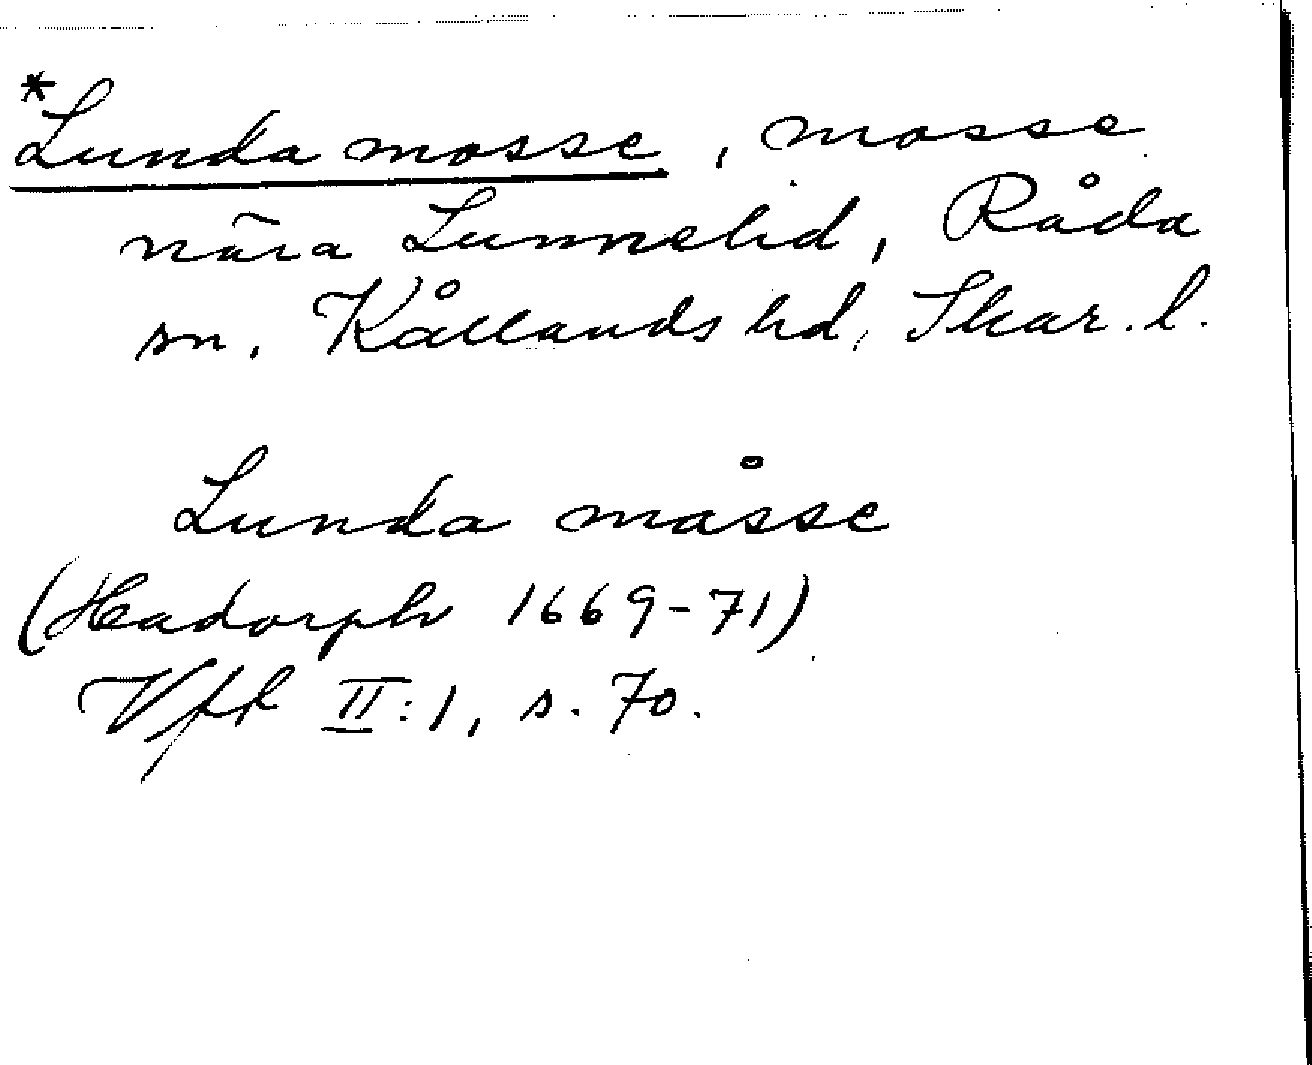 *Lunda mosse, mosse
nära Lunnelid, Råda
sn. Kållands hd, Skar. l.
Lunda måsse
(Hadorph 1669-71)
Vff II:1, s. 70.